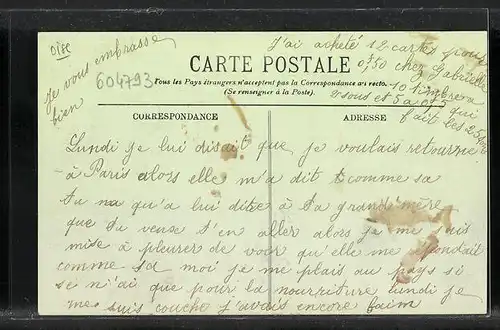 Oise
je vous embrasse
bien
604793
J'ai acheté 12 cartes pour
0f50 chez Gabrielle
10 timbres a
2 sous et 5 a 0f05 qui
fait les 2f50
CARTE POSTALE
Tous les Pays étrangers n'acceptent pas la Correspondance au recto.
(Se renseigner à la Poste).
CORRESPONDANCE
ADRESSE
Lundi je lui disait que je voulais retourne
à Paris alors elle m'a dit comme sa
tu na qu'a lui dire à ta grand'mère
que tu veuse t'en aller alors je me suis
mise à pleurer de voir qu'elle me repondait
comme sa moi je me plais au pays si
se n'ai que pour la nourriture lundi je
me suis couche j'avais encore faim